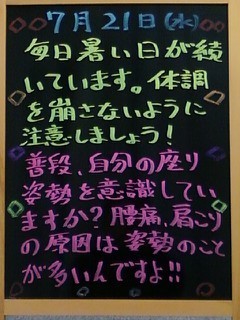 7月21日(水)
毎日暑い日が続
いています。体調
を崩さないように
注意しましょう!
普段、自分の座り
姿勢を意識してい
ますか?腰痛、肩こり
の原因は姿勢のこと
が多いんですよ!!